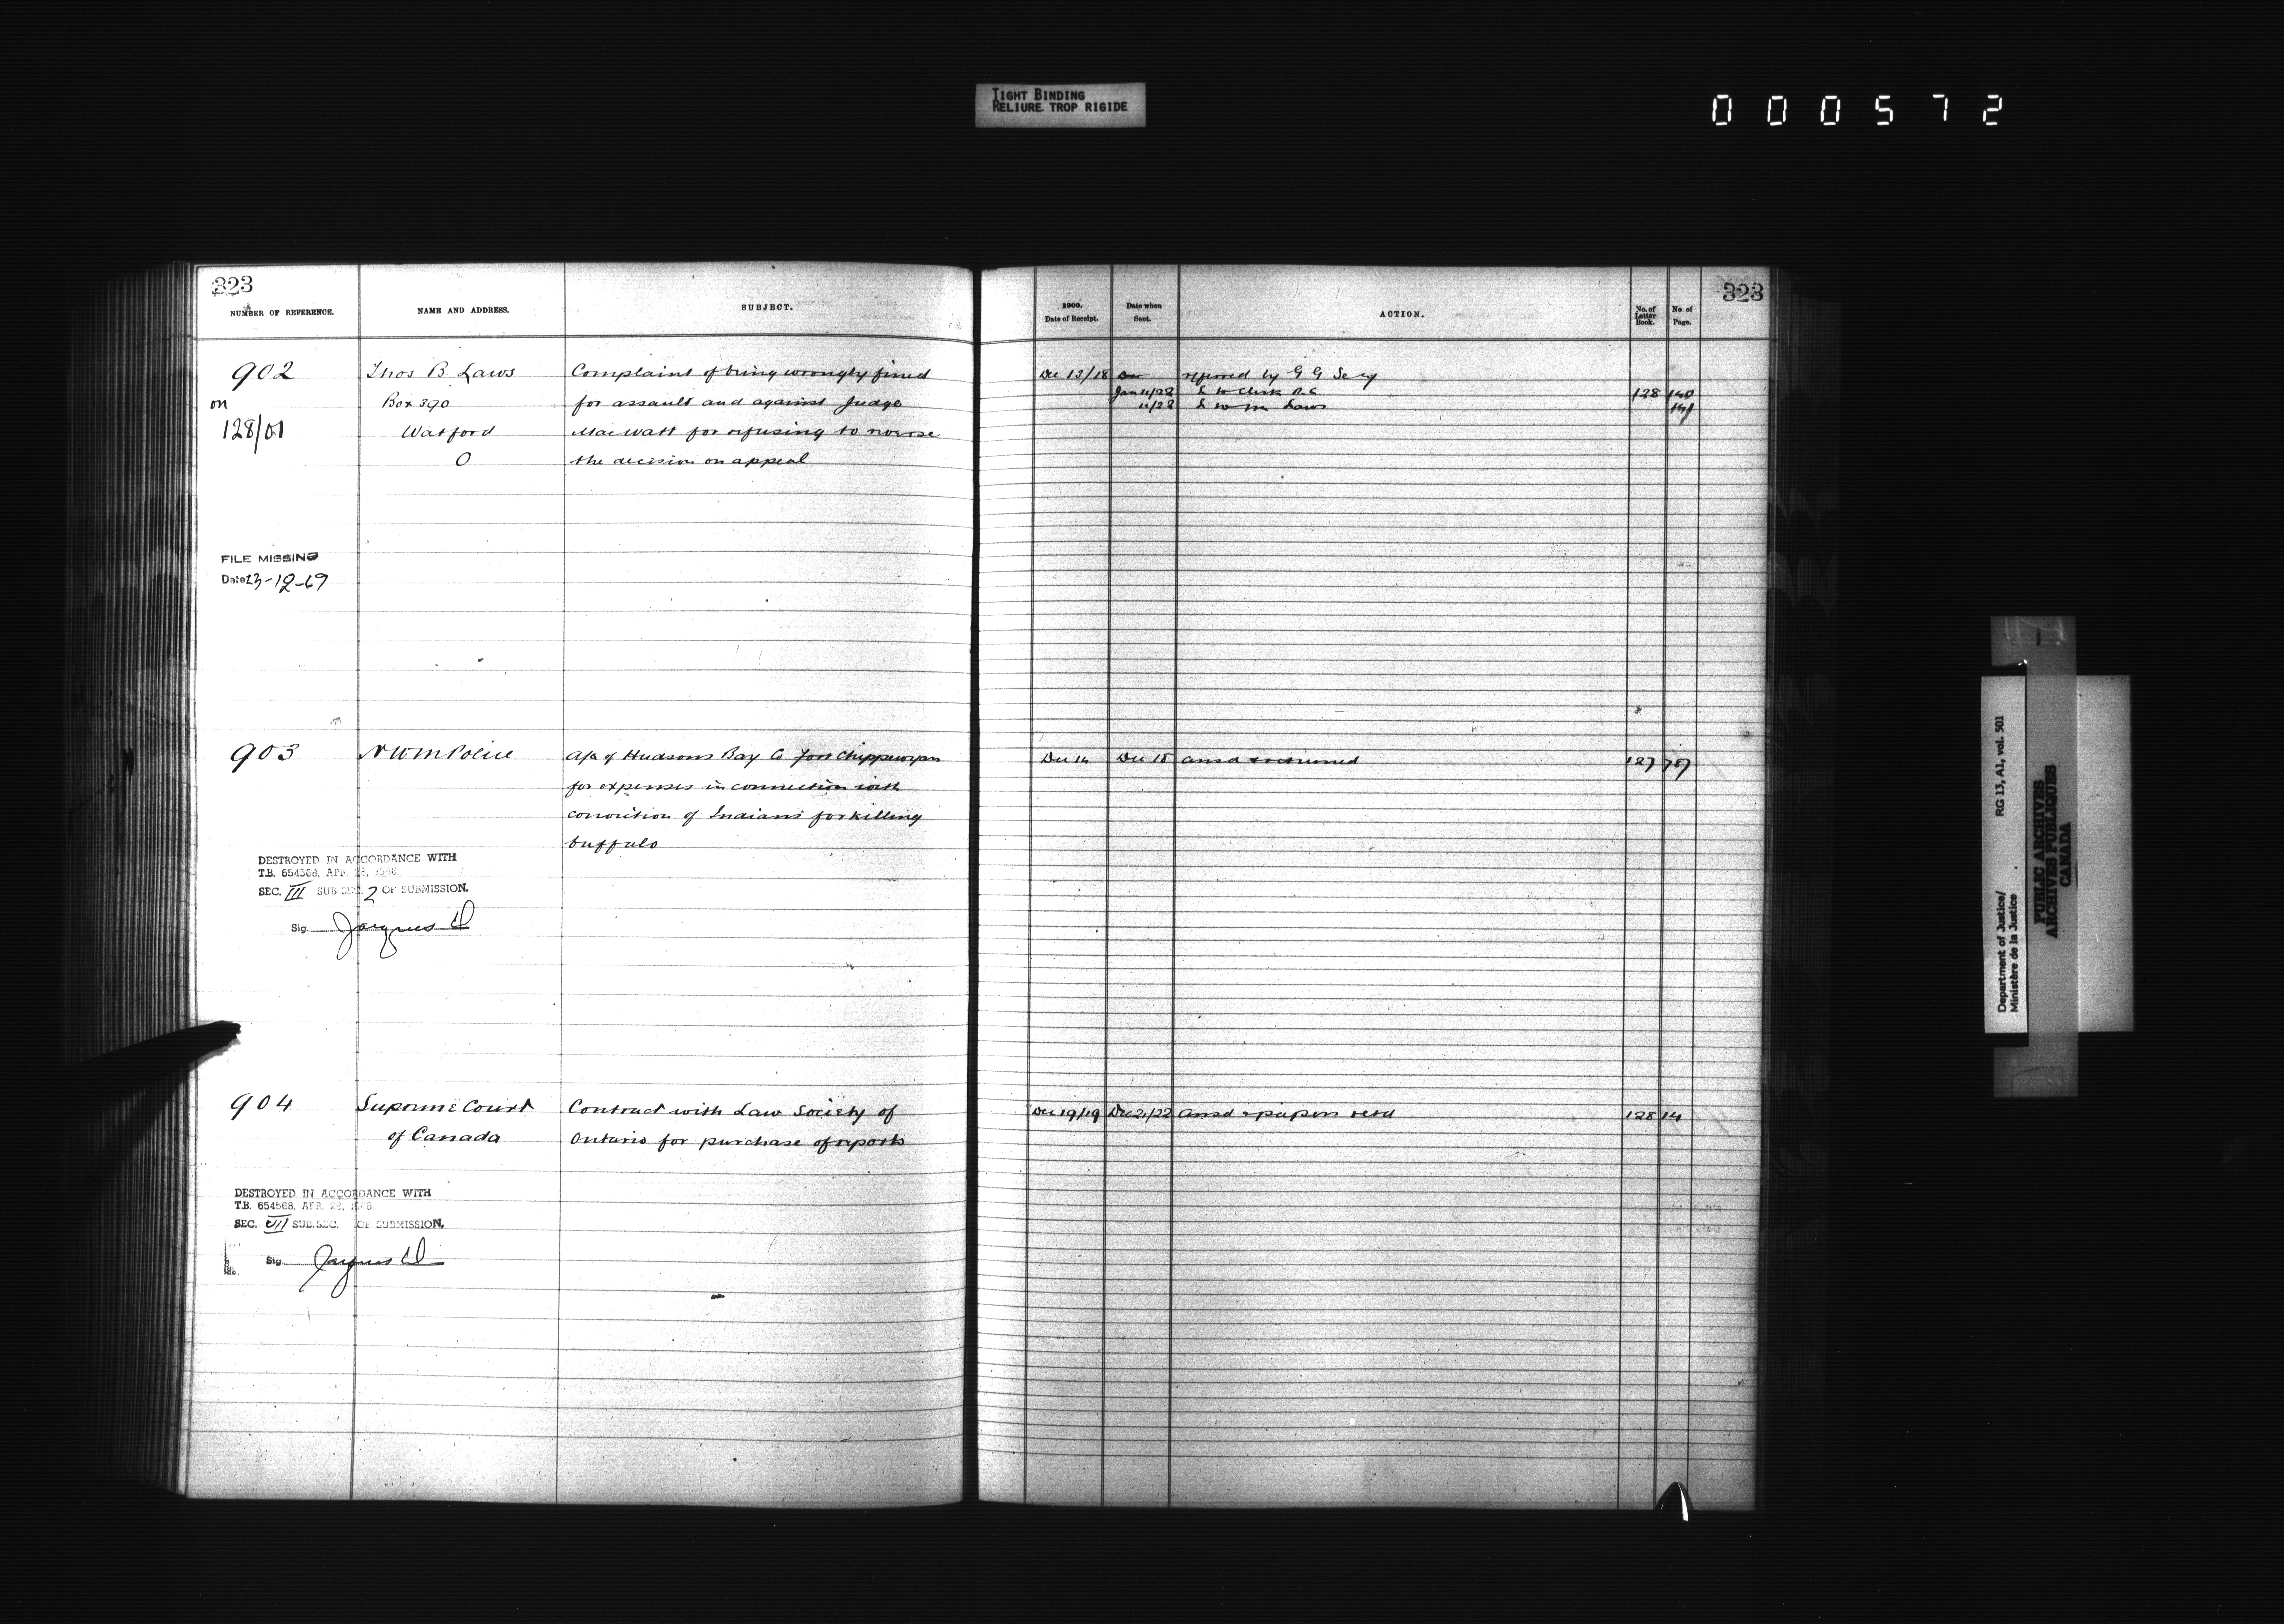 TIGHT BINDING
RELIURE TROP RIGIDE
000572
323
NUMBER OF REFERENCE.
NAME AND ADDRESS.
SUBJECT.
902
on
128/01
Thos B Laws
Box 390
Watford
O
Complaint of being wrongly fined
for assault and against Judge
MacWatt for refusing to reverse
the decision on appeal
FILE MISSING
Date 23-12-69
903
NWM Police
a/c of Hudsons Bay Co Fort Chippewyan
for expenses in connection with
conviction of Indians for killing
buffalo
DESTROYED IN ACCORDANCE WITH
T.B. 654568, APR. 1966
SEC. III SUB SEC. 2 OF SUBMISSION.
Sig. Jacques
904
Supreme Court
of Canada
Contract with Law Society of
Ontario for purchase of reports
DESTROYED IN ACCORDANCE WITH
T.B. 654568, APR.
SEC. VII SUB.SEC. OF SUBMISSION.
Sig. Jacques
323
1900.
Date of Receipt.
Date when
Sent.
ACTION.
No. of
Letter
Book.
No. of
Page.
Dec 13/18 Dec referred by G G Secy
Jan 11/22 L to Clerk P.C 128 140
11/22 L to Mr Laws 141
Dec 14 Dec 18 ansd returned 127 787
Dec 19/19 Dec 21/22 ansd & papers retd 128 14
Department of Justice/
Ministère de la Justice
RG 13, A1, vol. 501
PUBLIC ARCHIVES
ARCHIVES PUBLIQUES
CANADA